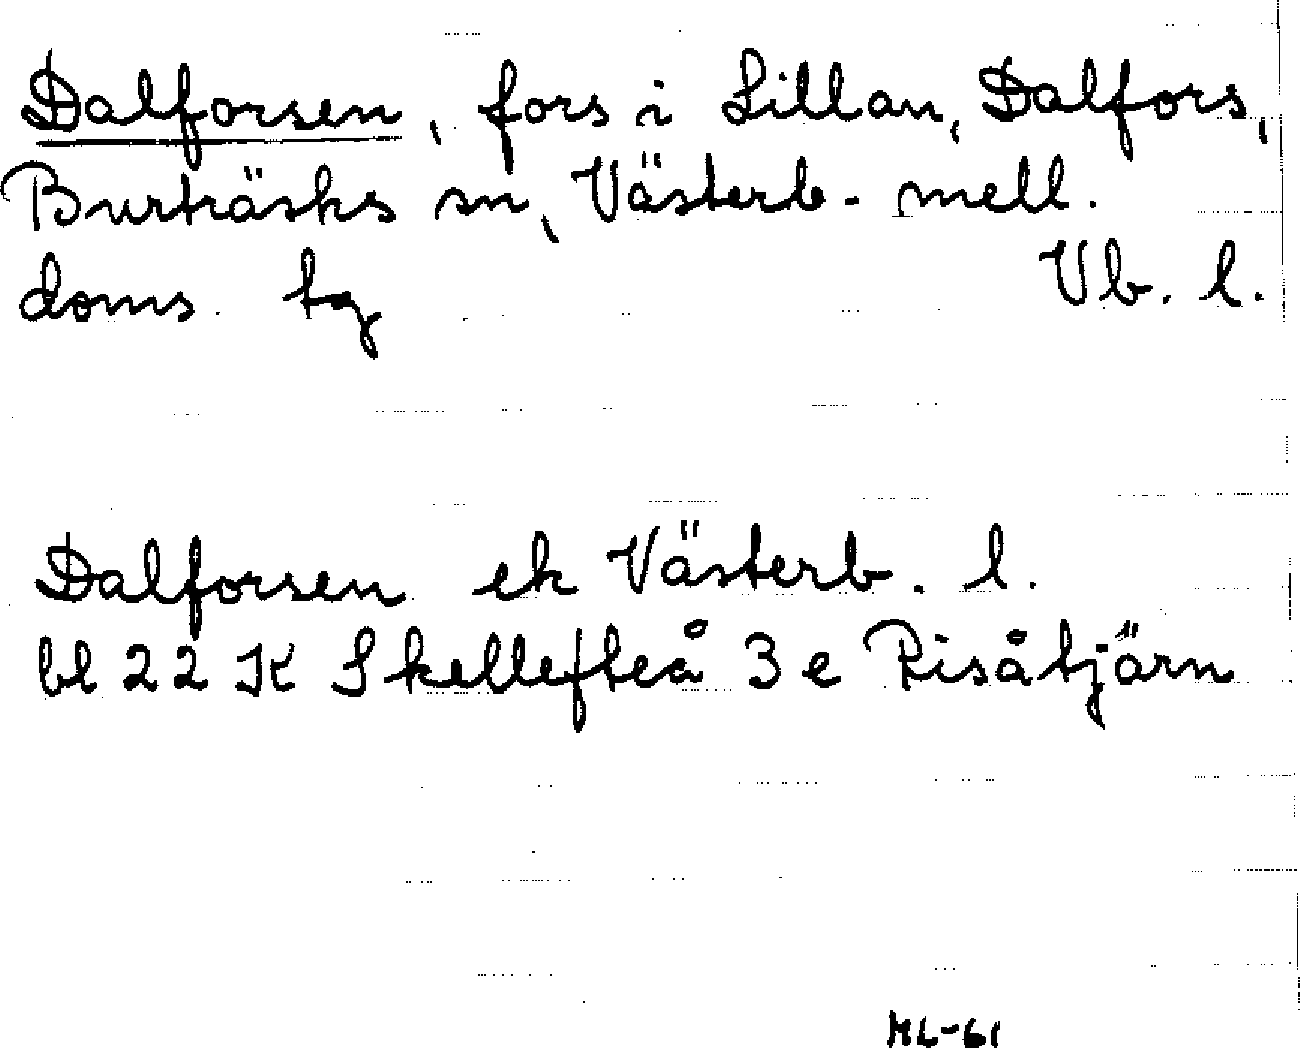 Dalforsen, fors i Lillan, Dalfors,
Burträsks sn, Västerb. mell.
doms. tg Vb. l.
Dalforsen ek Västerb. l.
bl 22 K Skellefteå 3 e Risåtjärn
ML-61